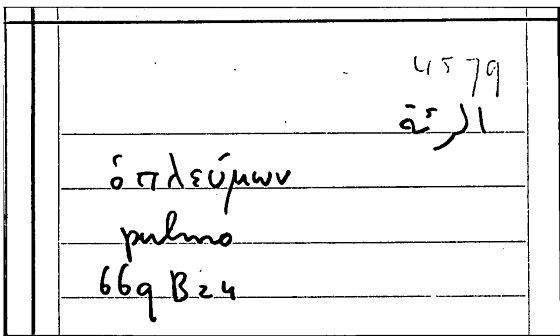 4579
الرئة
ὁ πλεύμων
pulmo
669 B 24